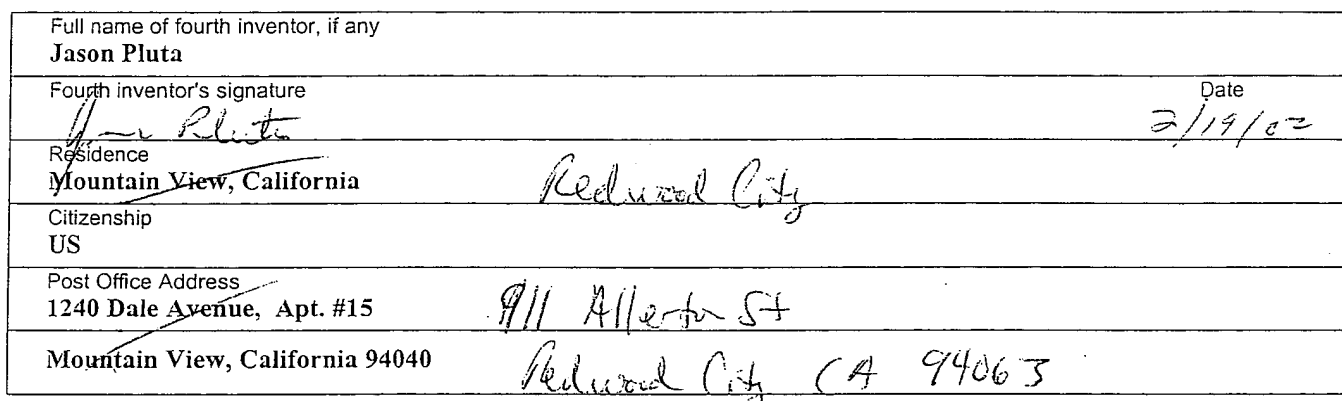 Full name of fourth inventor, if any
Jason Pluta
Fourth inventor's signature Date
Pluta 2/19/02
Residence
Mountain View, California Redwood City
Citizenship
US
Post Office Address
1240 Dale Avenue, Apt. #15 911 Allerton St
Mountain View, California 94040 Redwood City CA 94063